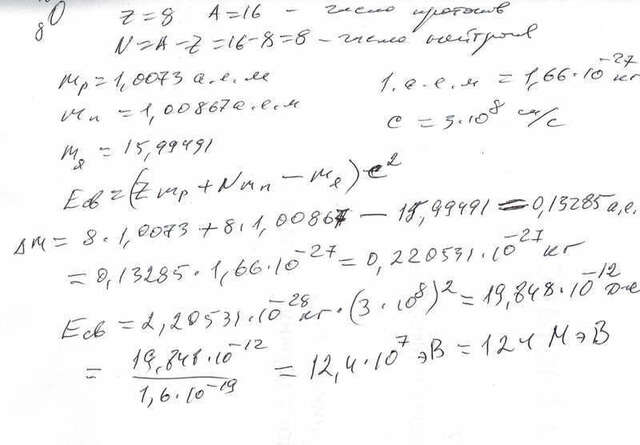 ₈O Z=8 A=16 – число протонов
N=A-Z=16-8=8 – число нейтронов
mp=1,0073 а.е.м 1. а.е.м = 1,66·10⁻²⁷ кг
mn=1,00867 а.е.м c=3·10⁸ м/с
mя=15,99491
Eсв=(Zmp+Nmn-mя)·c²
Δm=8·1,0073+8·1,00867-15,99491=0,13285 а.е.
=0,13285·1,66·10⁻²⁷=0,220531·10⁻²⁷ кг
Eсв=2,20531·10⁻²⁸ кг·(3·10⁸)²=19,848·10⁻¹² Дж
=19,848·10⁻¹²/1,6·10⁻¹⁹=12,4·10⁷ эВ=124 МэВ